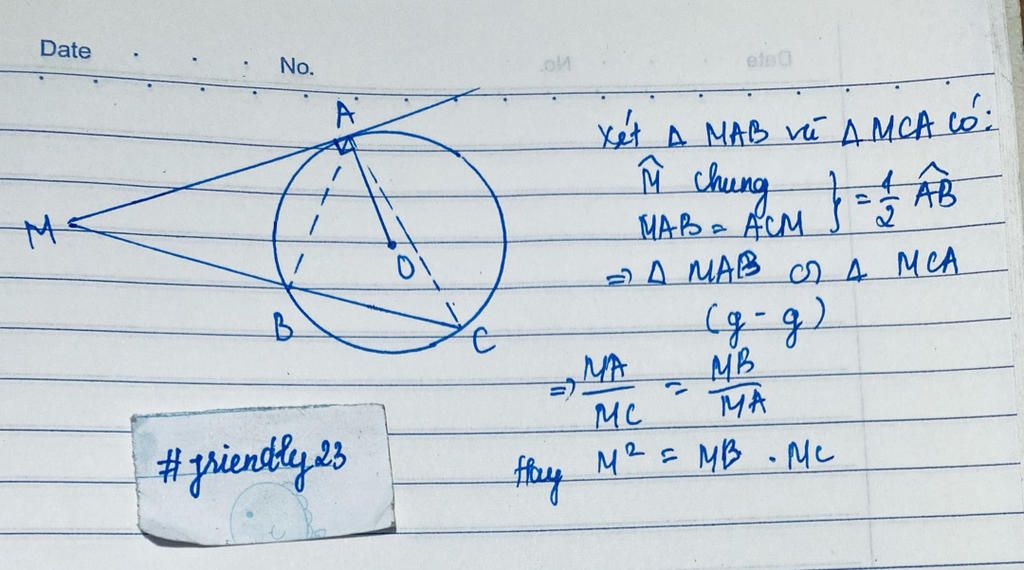 Date
No.
A
M
O
B
C
Xét Δ MAB và Δ MCA có:
M̂ chung
MAB = ACM } = 1/2 A͡B
=> Δ MAB ∽ Δ MCA
(g - g)
=> MA/MC = MB/MA
Hay M² = MB . MC
#friendly23